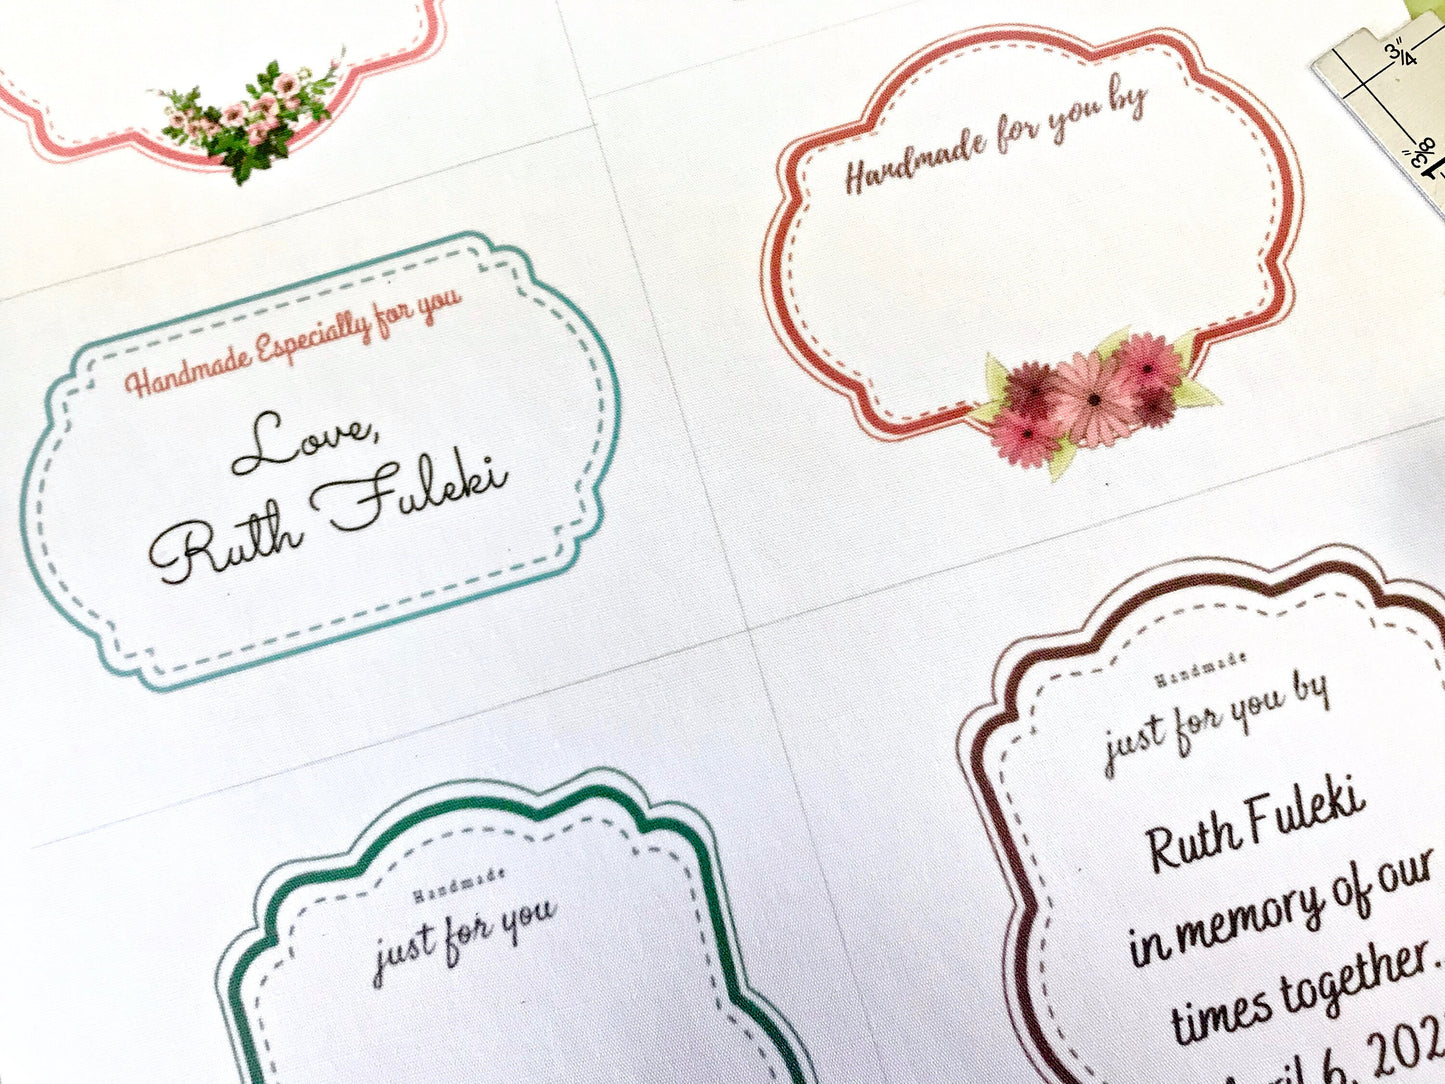 3/4"
1 3/8"
Handmade for you by
Handmade Especially for you
Love,
Ruth Fuleki
Handmade
just for you by
Ruth Fuleki
in memory of our
times together.
6, 202
Handmade
just for you